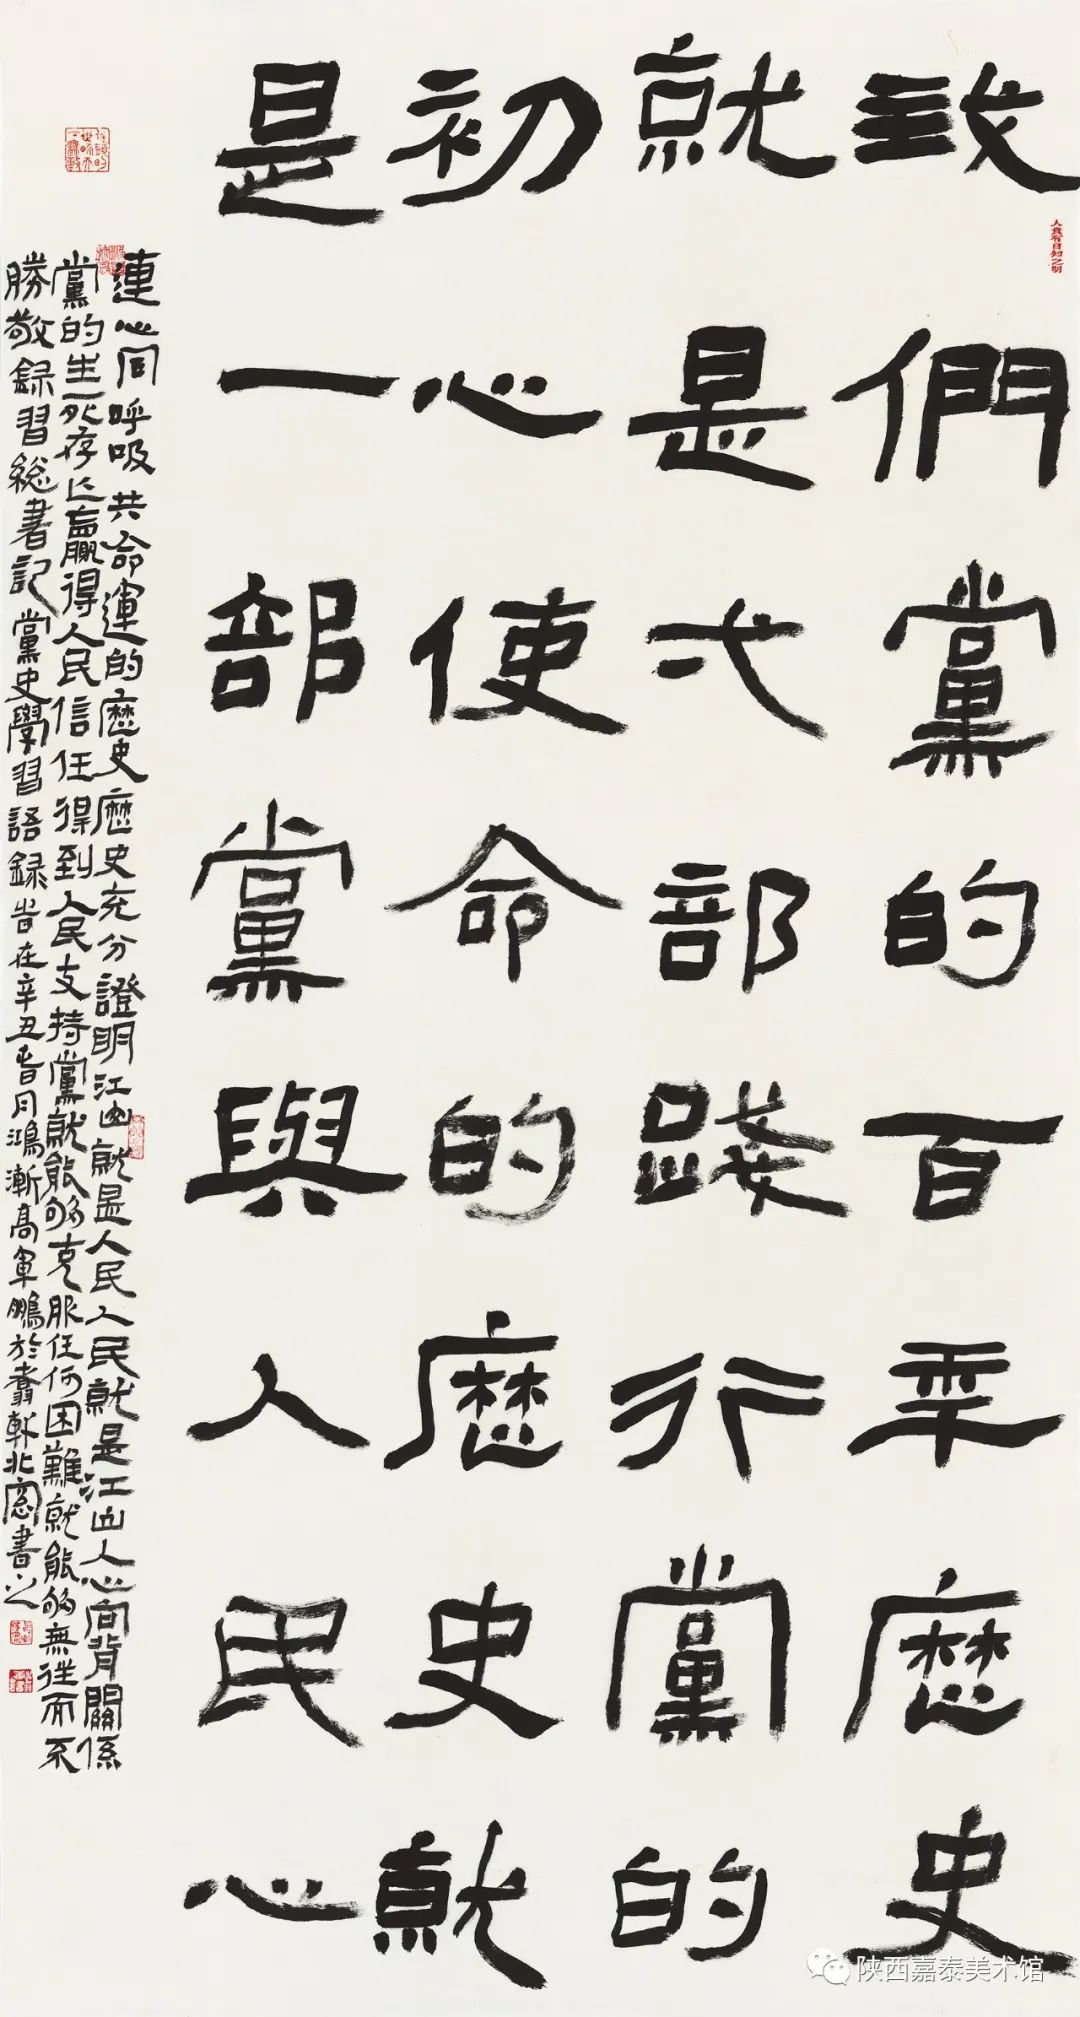 我們黨的百年歷史
人貴有自知之明
就是弌部踐行黨的
初心使命的歷史就
是一部黨與人民心
連心同呼吸共命運的歷史歷史充分證明江山就是人民人民就是江山人心向背關係
黨的生死存亡贏得人民信任得到人民支持黨就能夠克服任何困難就能夠無往而不
勝敬録習總書記黨史學習語録時在辛丑春月鴻漸高軍鵬於翥軒北窗書之
陕西嘉泰美术馆